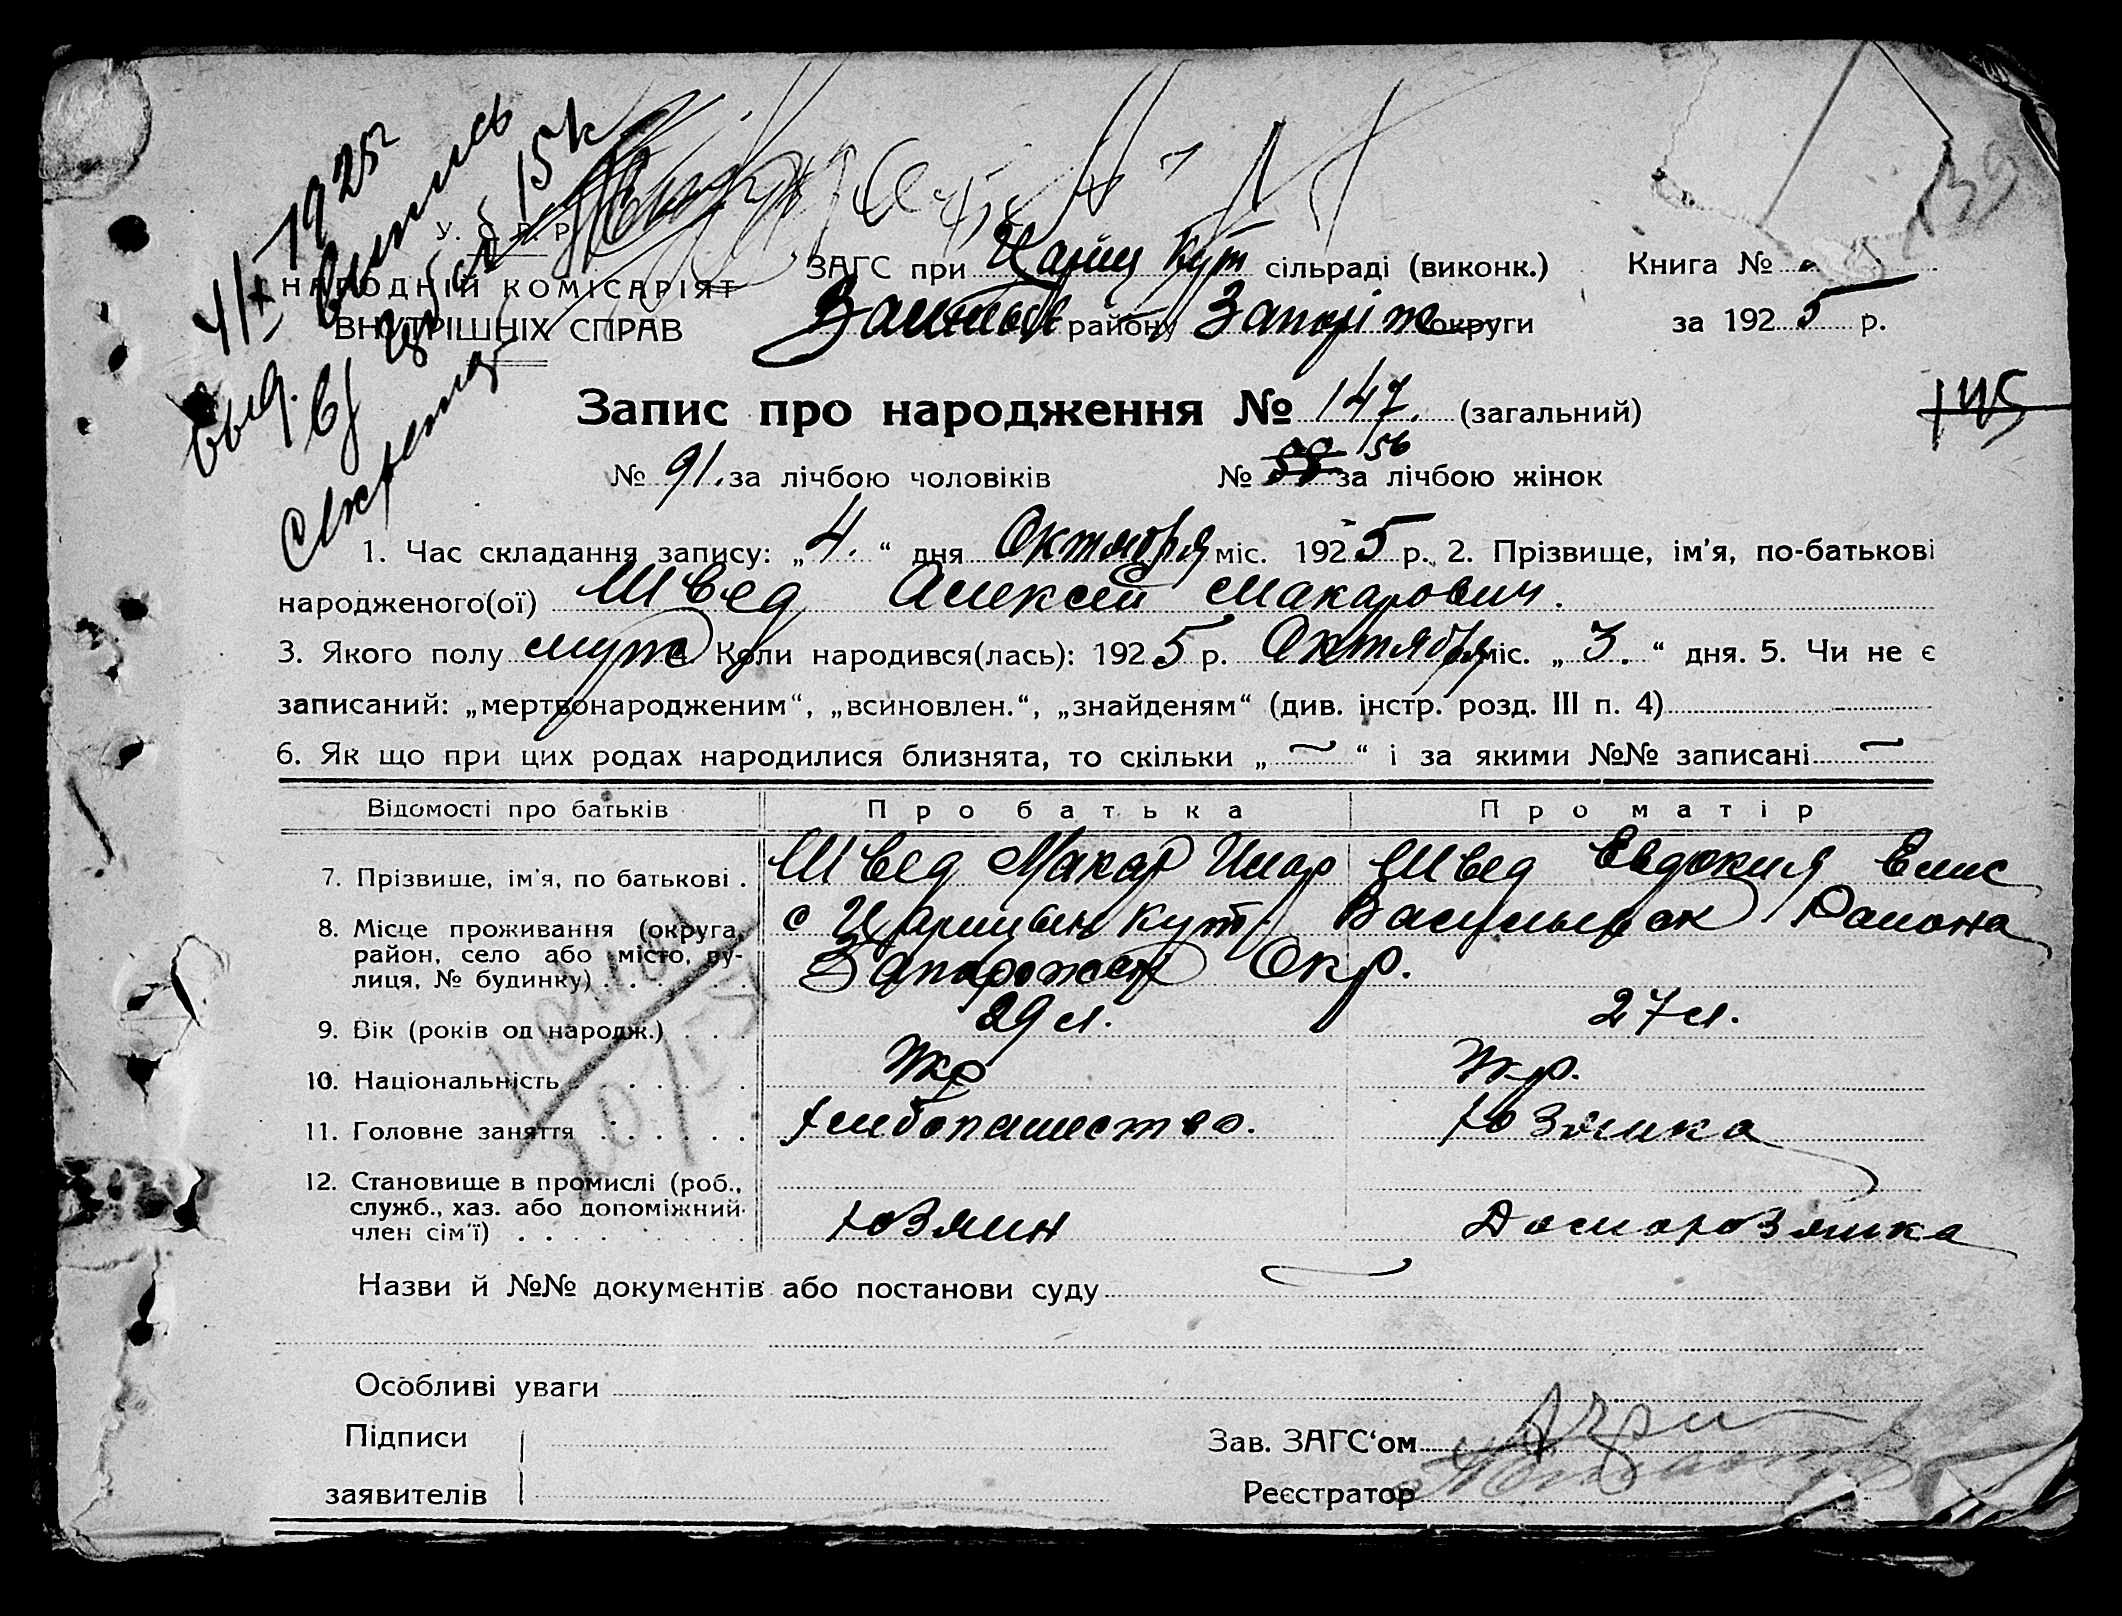 У. С. Р. Р.
НАРОДНІЙ КОМІСАРІЯТ
ВНУТРІШНІХ СПРАВ
ЗАГС при Цариц Кут сільраді (виконк.) Книга №
району Запоріж округи за 1925 р.
Запис про народження № 147. (загальний)
145
№ 91. за лічбою чоловіків № 58 56 за лічбою жінок
1. Час складання запису: „4.“ дня Октября міс. 1925 р. 2. Прізвище, ім’я, по-батькові
народженого(ої) Швед Алексей Макарович.
3. Якого полу муж 4. Коли народився(лась): 1925 р. Октября міс. „3.“ дня. 5. Чи не є
записаний: „мертвонародженим“, „всиновлен.“, „знайденям“ (див. інстр. розд. III п. 4)
6. Як що при цих родах народилися близнята, то скільки „—“ і за якими №№ записані —
Відомості про батьків Про батька Про матір
7. Прізвище, ім’я, по батькові . Швед Макар Швед Евдокия
8. Місце проживання (округа, район, село або місто, вулиця, № будинку) с Царицын Кут Васильевск Района
Запорожск Окр.
9. Вік (років од народж.) 29 л. 27 л.
10. Національність Укр Укр.
11. Головне заняття Хлебопашество. Хозяйка
12. Становище в промислі (роб., служб., хаз. або допоміжний член сім’ї) Хозяин Домохозяйка
Назви й №№ документів або постанови суду
Особливі уваги
Підписи
заявителів
Зав. ЗАГС‘ом
Реєстратор